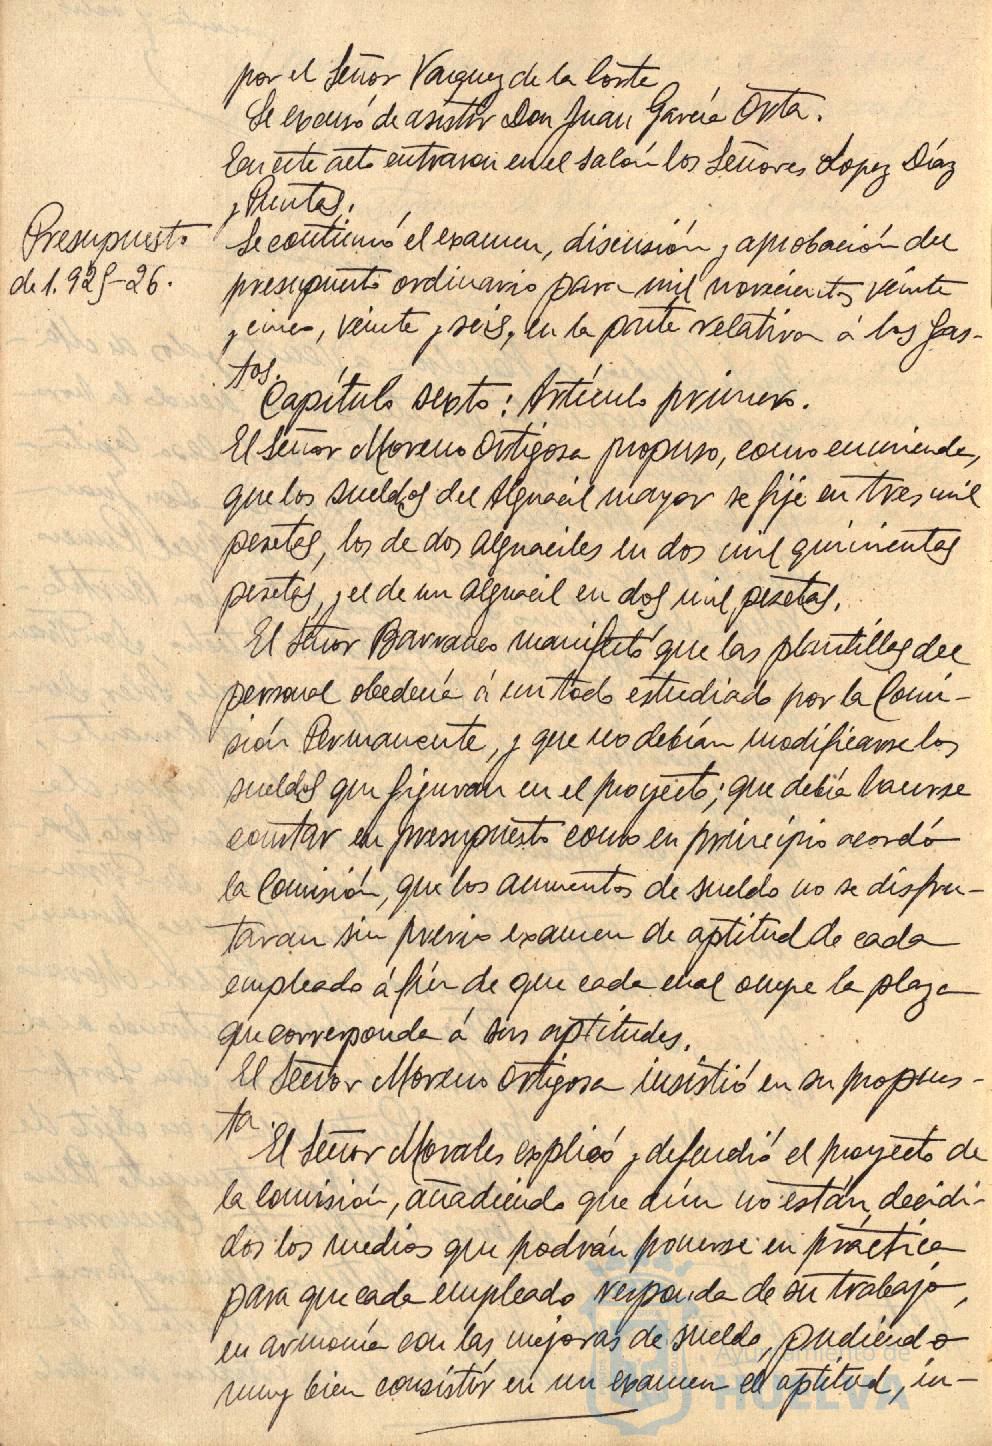 por el Señor Vazquez de la Corte
Se excusó de asistir Don Juan García Orta.
En este acto entraron en el salón los Señores Lopez Díaz
y Puntas.
Presupuesto
de 1.925-26.
Se continuó el examen, discusión y aprobación del
presupuesto ordinario para mil novecientos veinte
y cinco, veinte y seis, en la parte relativa á los Gas-
tos.
Capítulo sexto: Artículo primero.
El Señor Moreno Ortigosa propuso, como enmienda,
que los sueldos del Alguacil mayor se fije en tres mil
pesetas, los de dos Alguaciles en dos mil quinientas
pesetas, y el de un Alguacil en dos mil pesetas.
El Señor Barranco manifestó que las plantillas del
personal obedecía á un todo estudiado por la Comi-
sión Permanente, y que no debían modificarse los
sueldos que figuran en el proyecto; que debía hacerse
constar en presupuesto como en principio acordó
la Comisión, que los aumentos de sueldo no se disfru-
taran sin previo examen de aptitud de cada
empleado á fin de que cada cual ocupe la plaza
que corresponda á sus aptitudes.
El Señor Moreno Ortigosa insistió en su propues-
ta.
El Señor Morales explicó y defendió el proyecto de
la Comisión, añadiendo que aún no están decidi-
dos los medios que podrán ponerse en práctica
para que cada empleado responda de su trabajo,
en armonía con las mejoras de sueldo, pudiendo
muy bien consistir en un examen de aptitud, in-
Ayuntamiento de
HUELVA